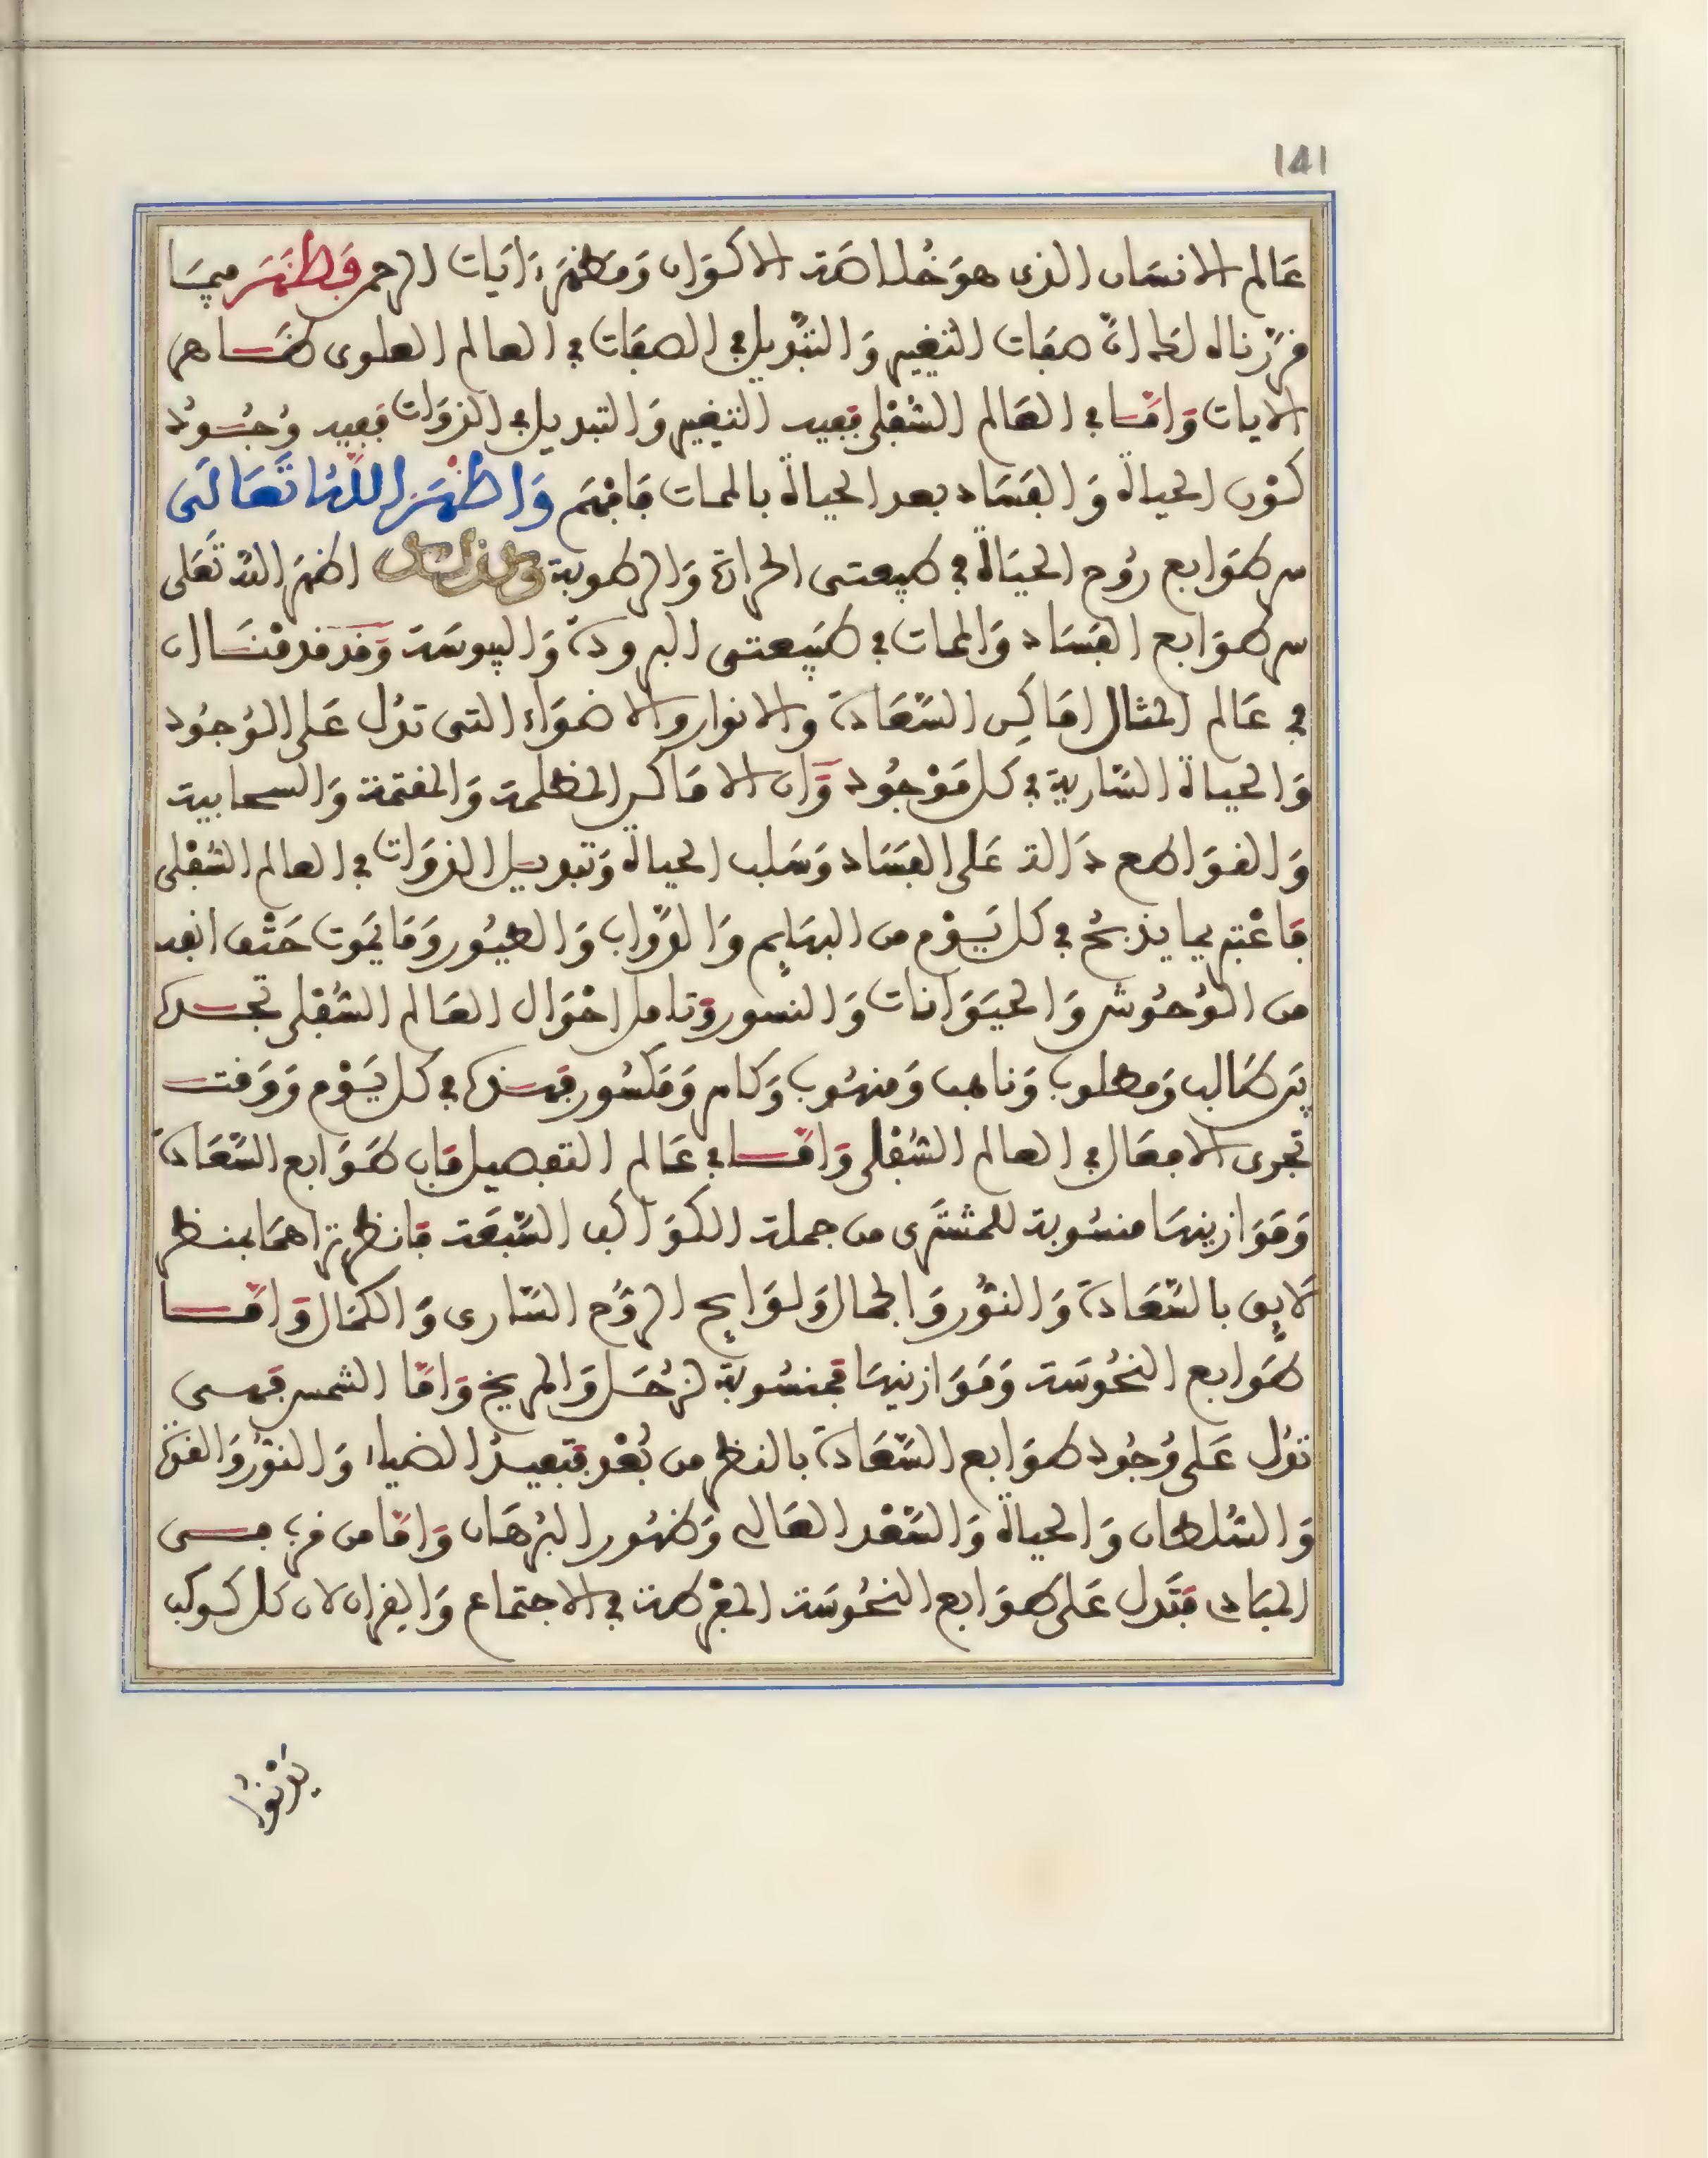 141
عَالم الانسَان الذي هوَ خُلاصَة الاكوَان وَمظهَر ءَايَات الرحمن فَظَهَرَ ميمَا
قرّرناه لك انّ صفَات التغيير وَالتبْديل في الصفَات في العالم العلوى ظَاهر
الايات وَامّا في العَالم السُّفلى ففيه التغيير وَالتبديل في الذوَات ففيه وُجُود
كوْن الحياة وَالفسَاد بعد الحياة بالممات فَافهَم وَاظهَرَ اللهُ تَعَالَى
سر طوَابع رُوح الحيَاة في طبيعتى الحرارة وَالرطوبة وكذلك اظهَر اللهُ تعَلى
سر طوَابع الفسَاد وَالممات في طبيعتى البرودة وَاليبوسَة وَقد قدمْنَا ان
في عَالم المثال امَاكِن السَّعَادة والانوار والاضوَاء التى تدُل عَلى الوُجُود
وَالحياة السَّارية في كل مَوْجُود وَّان الامَاكن المظلمة وَالمقتمة وَالسحابية
وَالقوَاطع دَالة عَلى الفسَاد وَسَلب الحياة وَتبديل الذوَات في العالم السُّفْلى
فَاعْتبر بما يذبحُ في كل يَوْم من البهَايم وَالدَّوَاب وَالطيُور وَمَا يمَوت حَتْف انفه
من الوُحُوش وَالحيَوَانات وَالنسور وَتامل احْوَال العَالم السُّفْلى تجدك
بين طَالب وَمطلوب وَناهب وَمنهُوب وَكاسر وَمَكسُور فهذا في كل يَوْم وَوَقت
تجرى الافعَال في العالم السُّفْلى وَامّا في عَالم التفصيل فَان طَوَابع السَّعَادة
وَمَوَازينهَا منسُوبة للمشتَرى من جملة الكوَاكب السَّبعَة فانظر تراهَا بمنظر
لَايق بالسَّعَادة وَالنُّور وَالجمال وَلوَايح الرُّوح السَّارى وَالكمَال وَامّا
طوَابع النحُوسَة وَمَوَازينهَا فمنسُوبة لزُحَل وَالمريخ وَامَّا الشمس فهى
تدُل عَلى وُجُود طوَابع السَّعَادة بالنظر من بُعْد فتعيد الضياء وَالنُّور وَالقوّة
وَالسُّلطان وَالحياة وَالسَّعْد العَالى وَظهُور البُرهَان وَامّا من قرب فهى
الفساد فتَدل عَلى طوَابع النحُوسَة المفرطة في الاجتماع وَالقِران لان كل كوكب
يقْترن